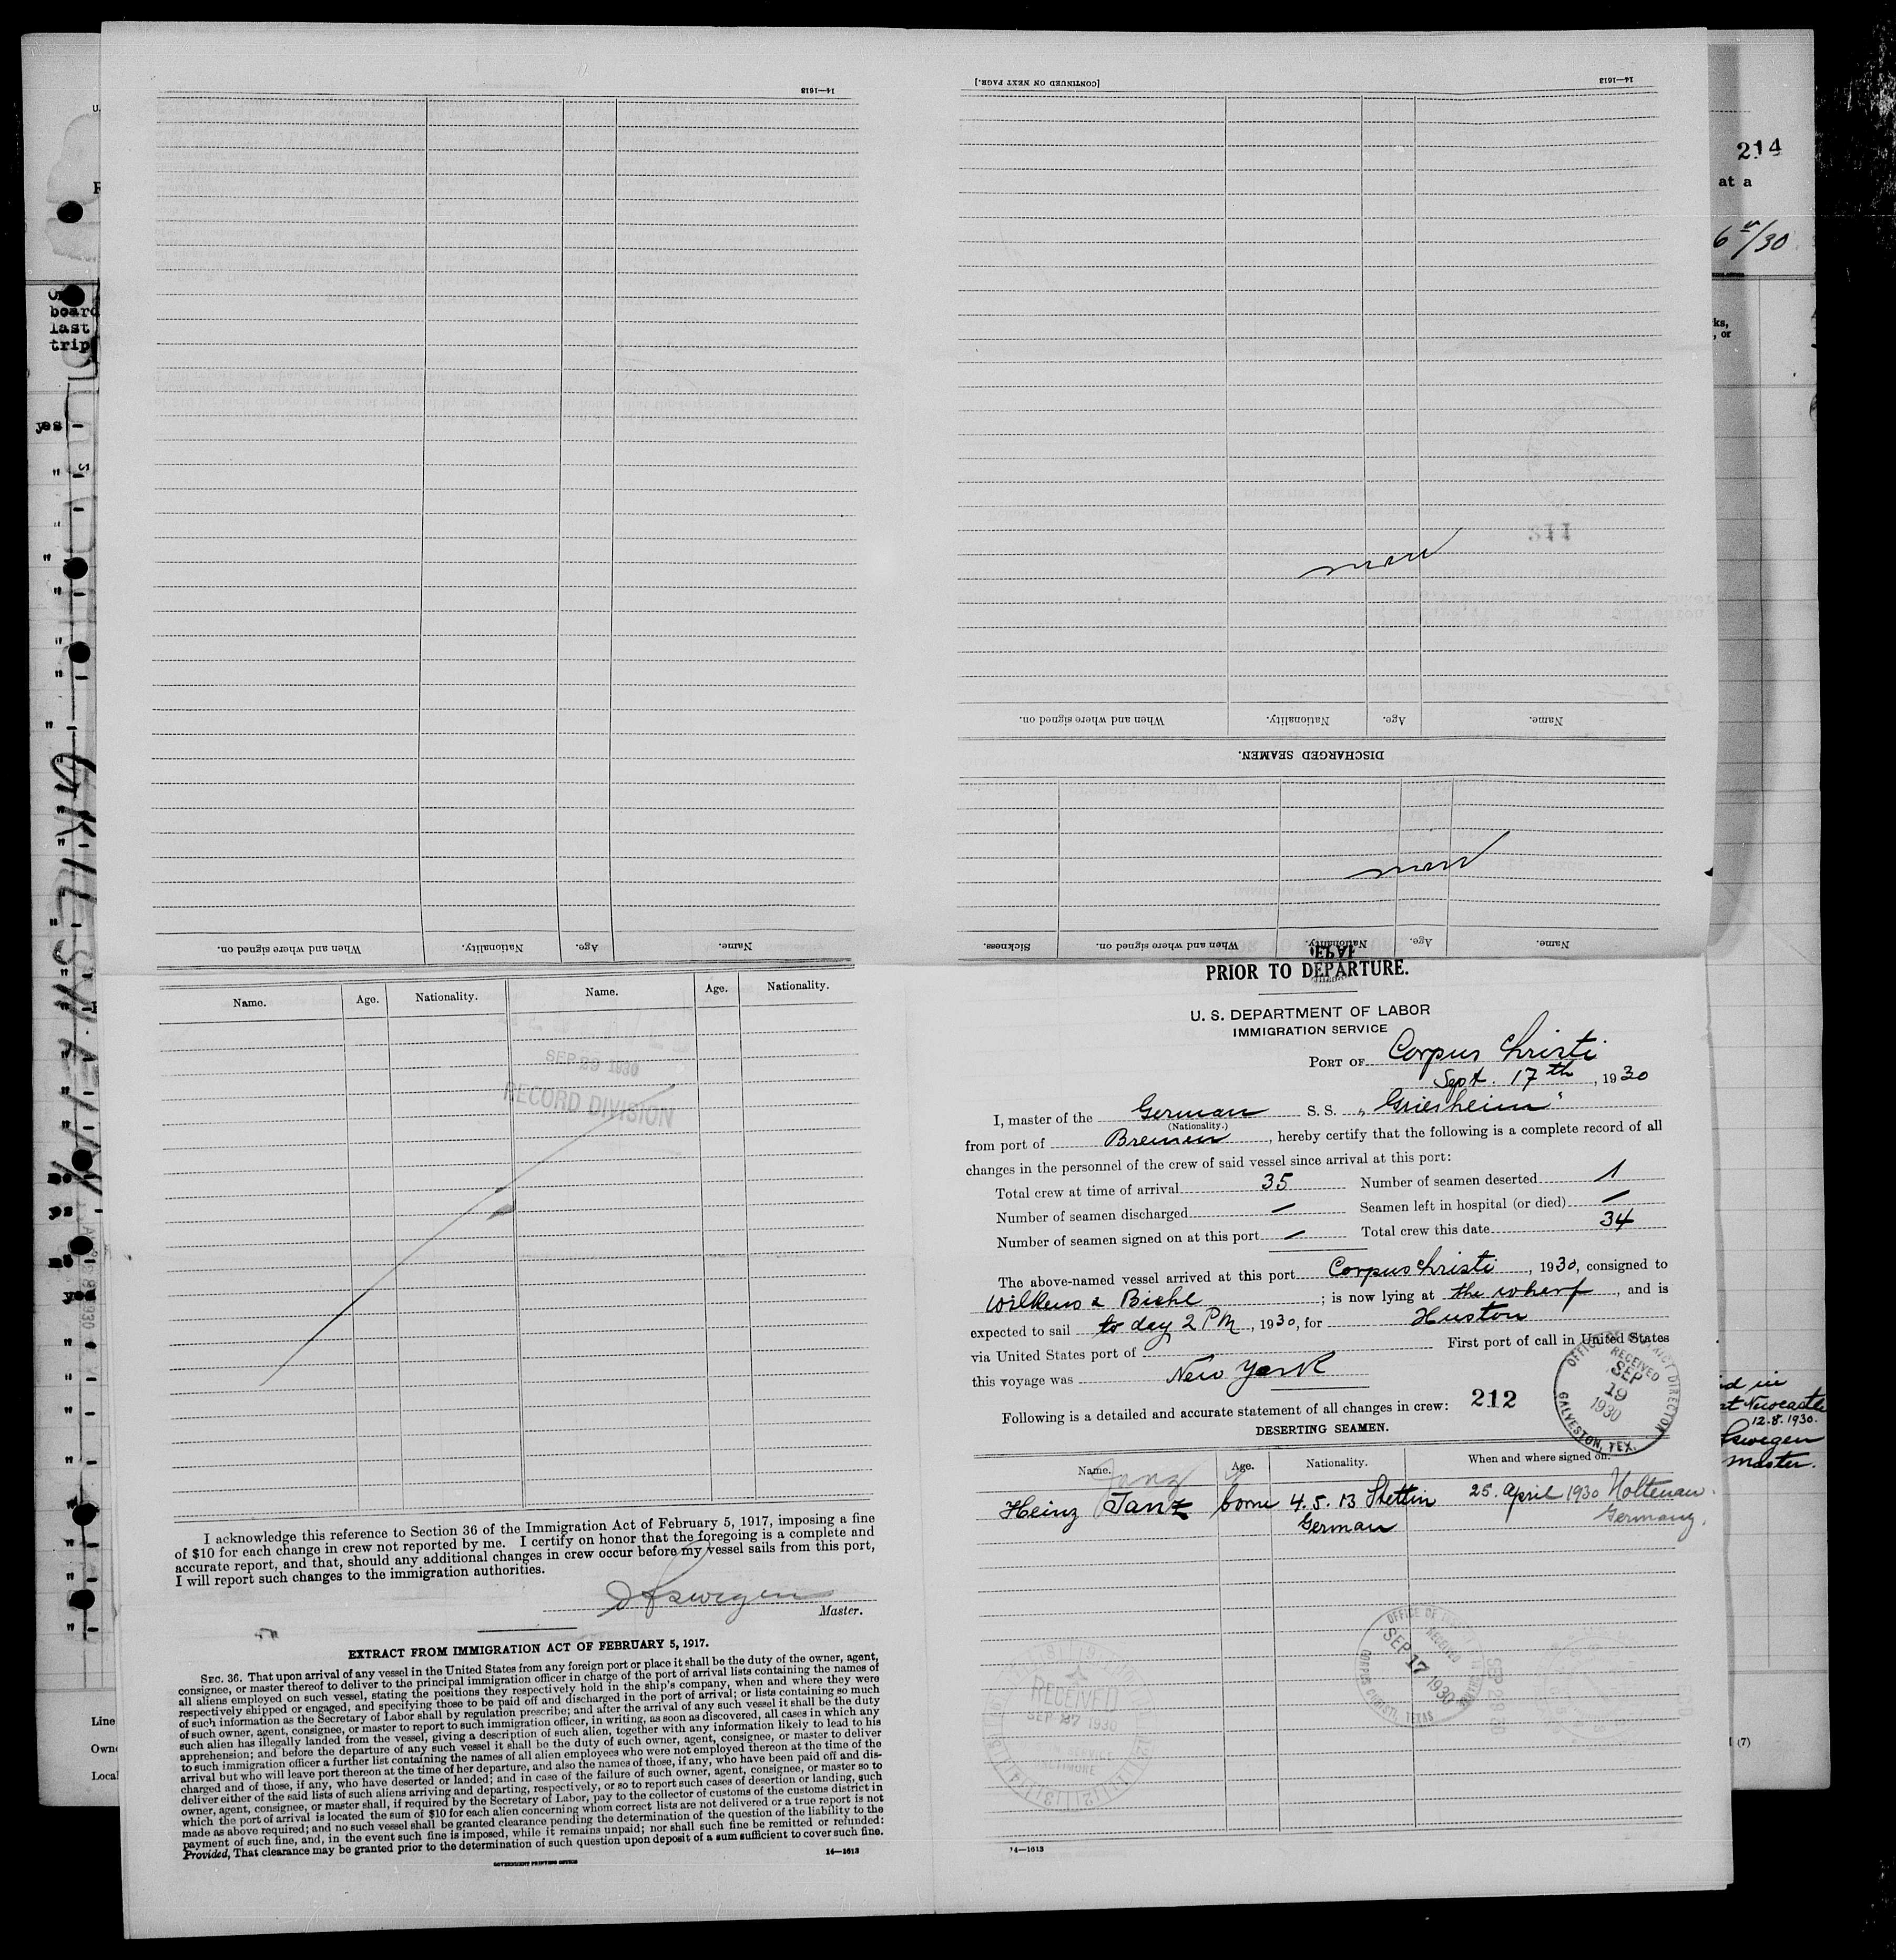 14—1613
[CONTINUED ON NEXT PAGE.]
14—1613
214
at a
6th/30
board
last
trip
ks,
, or
yes
none
When and where signed on.
Nationality.
Age.
Name.
DISCHARGED SEAMEN.
none
Sickness.
When and where signed on.
Nationality.
Age.
Name.
When and where signed on.
Nationality.
Age.
Name.
GRIESHEIM
Name.
Age.
Nationality.
Name.
Age.
Nationality.
SEP 29 1930
RECORD DIVISION
no
ys
no
yes
I acknowledge this reference to Section 36 of the Immigration Act of February 5, 1917, imposing a fine
of $10 for each change in crew not reported by me. I certify on honor that the foregoing is a complete and
accurate report, and that, should any additional changes in crew occur before my vessel sails from this port,
I will report such changes to the immigration authorities.
Master.
EXTRACT FROM IMMIGRATION ACT OF FEBRUARY 5, 1917.
SEC. 36. That upon arrival of any vessel in the United States from any foreign port or place it shall be the duty of the owner, agent,
consignee, or master thereof to deliver to the principal immigration officer in charge of the port of arrival lists containing the names of
all aliens employed on such vessel, stating the positions they respectively hold in the ship's company, when and where they were
respectively shipped or engaged, and specifying those to be paid off and discharged in the port of arrival; or lists containing so much
of such information as the Secretary of Labor shall by regulation prescribe; and after the arrival of any such vessel it shall be the duty
of such owner, agent, consignee, or master to report to such immigration officer, in writing, as soon as discovered, all cases in which any
such alien has illegally landed from the vessel, giving a description of such alien, together with any information likely to lead to his
apprehension; and before the departure of any such vessel it shall be the duty of such owner, agent, consignee, or master to deliver
to such immigration officer a further list containing the names of all alien employees who were not employed thereon at the time of the
arrival but who will leave port thereon at the time of her departure, and also the names of those, if any, who have been paid off and dis-
charged and of those, if any, who have deserted or landed; and in case of the failure of such owner, agent, consignee, or master so to
deliver either of the said lists of such aliens arriving and departing, respectively, or so to report such cases of desertion or landing, such
owner, agent, consignee, or master shall, if required by the Secretary of Labor, pay to the collector of customs of the customs district in
which the port of arrival is located the sum of $10 for each alien concerning whom correct lists are not delivered or a true report is not
made as above required; and no such vessel shall be granted clearance pending the determination of the question of the liability to the
payment of such fine, and, in the event such fine is imposed, while it remains unpaid; nor shall such fine be remitted or refunded:
Provided, That clearance may be granted prior to the determination of such question upon deposit of a sum sufficient to cover such fine.
GOVERNMENT PRINTING OFFICE
14—1613
Line
Owne
Local
PRIOR TO DEPARTURE.
U. S. DEPARTMENT OF LABOR
IMMIGRATION SERVICE
PORT OF Corpus Christi
Sept. 17th, 1930
I, master of the German S. S. „Griesheim"
(Nationality.)
from port of Bremen, hereby certify that the following is a complete record of all
changes in the personnel of the crew of said vessel since arrival at this port:
Total crew at time of arrival 35 Number of seamen deserted 1
Number of seamen discharged — Seamen left in hospital (or died) —
Number of seamen signed on at this port — Total crew this date 34
The above-named vessel arrived at this port Corpus christi, 1930, consigned to
Wilkens & Biehl; is now lying at the wharf, and is
expected to sail to day 2 PM, 1930, for Huston
via United States port of First port of call in United States
this voyage was New York
OFFICE OF DISTRICT DIRECTOR
RECEIVED
SEP
19
1930
GALVESTON, TEX.
Following is a detailed and accurate statement of all changes in crew: 212
DESERTING SEAMEN.
Name. Age. Nationality. When and where signed on.
Janz
Heinz Janz born 4. 5. 13 Stettin 25. April 1930 Holtenau.
German Germany.
OFFICE OF DISTRICT DIRECTOR
RECEIVED
SEP 17 1930
CORPUS CHRISTI, TEXAS
RECEIVED
SEP 27 1930
BALTIMORE
14—1613
d in
at Newcastle
12.8.1930.
master.
(7)